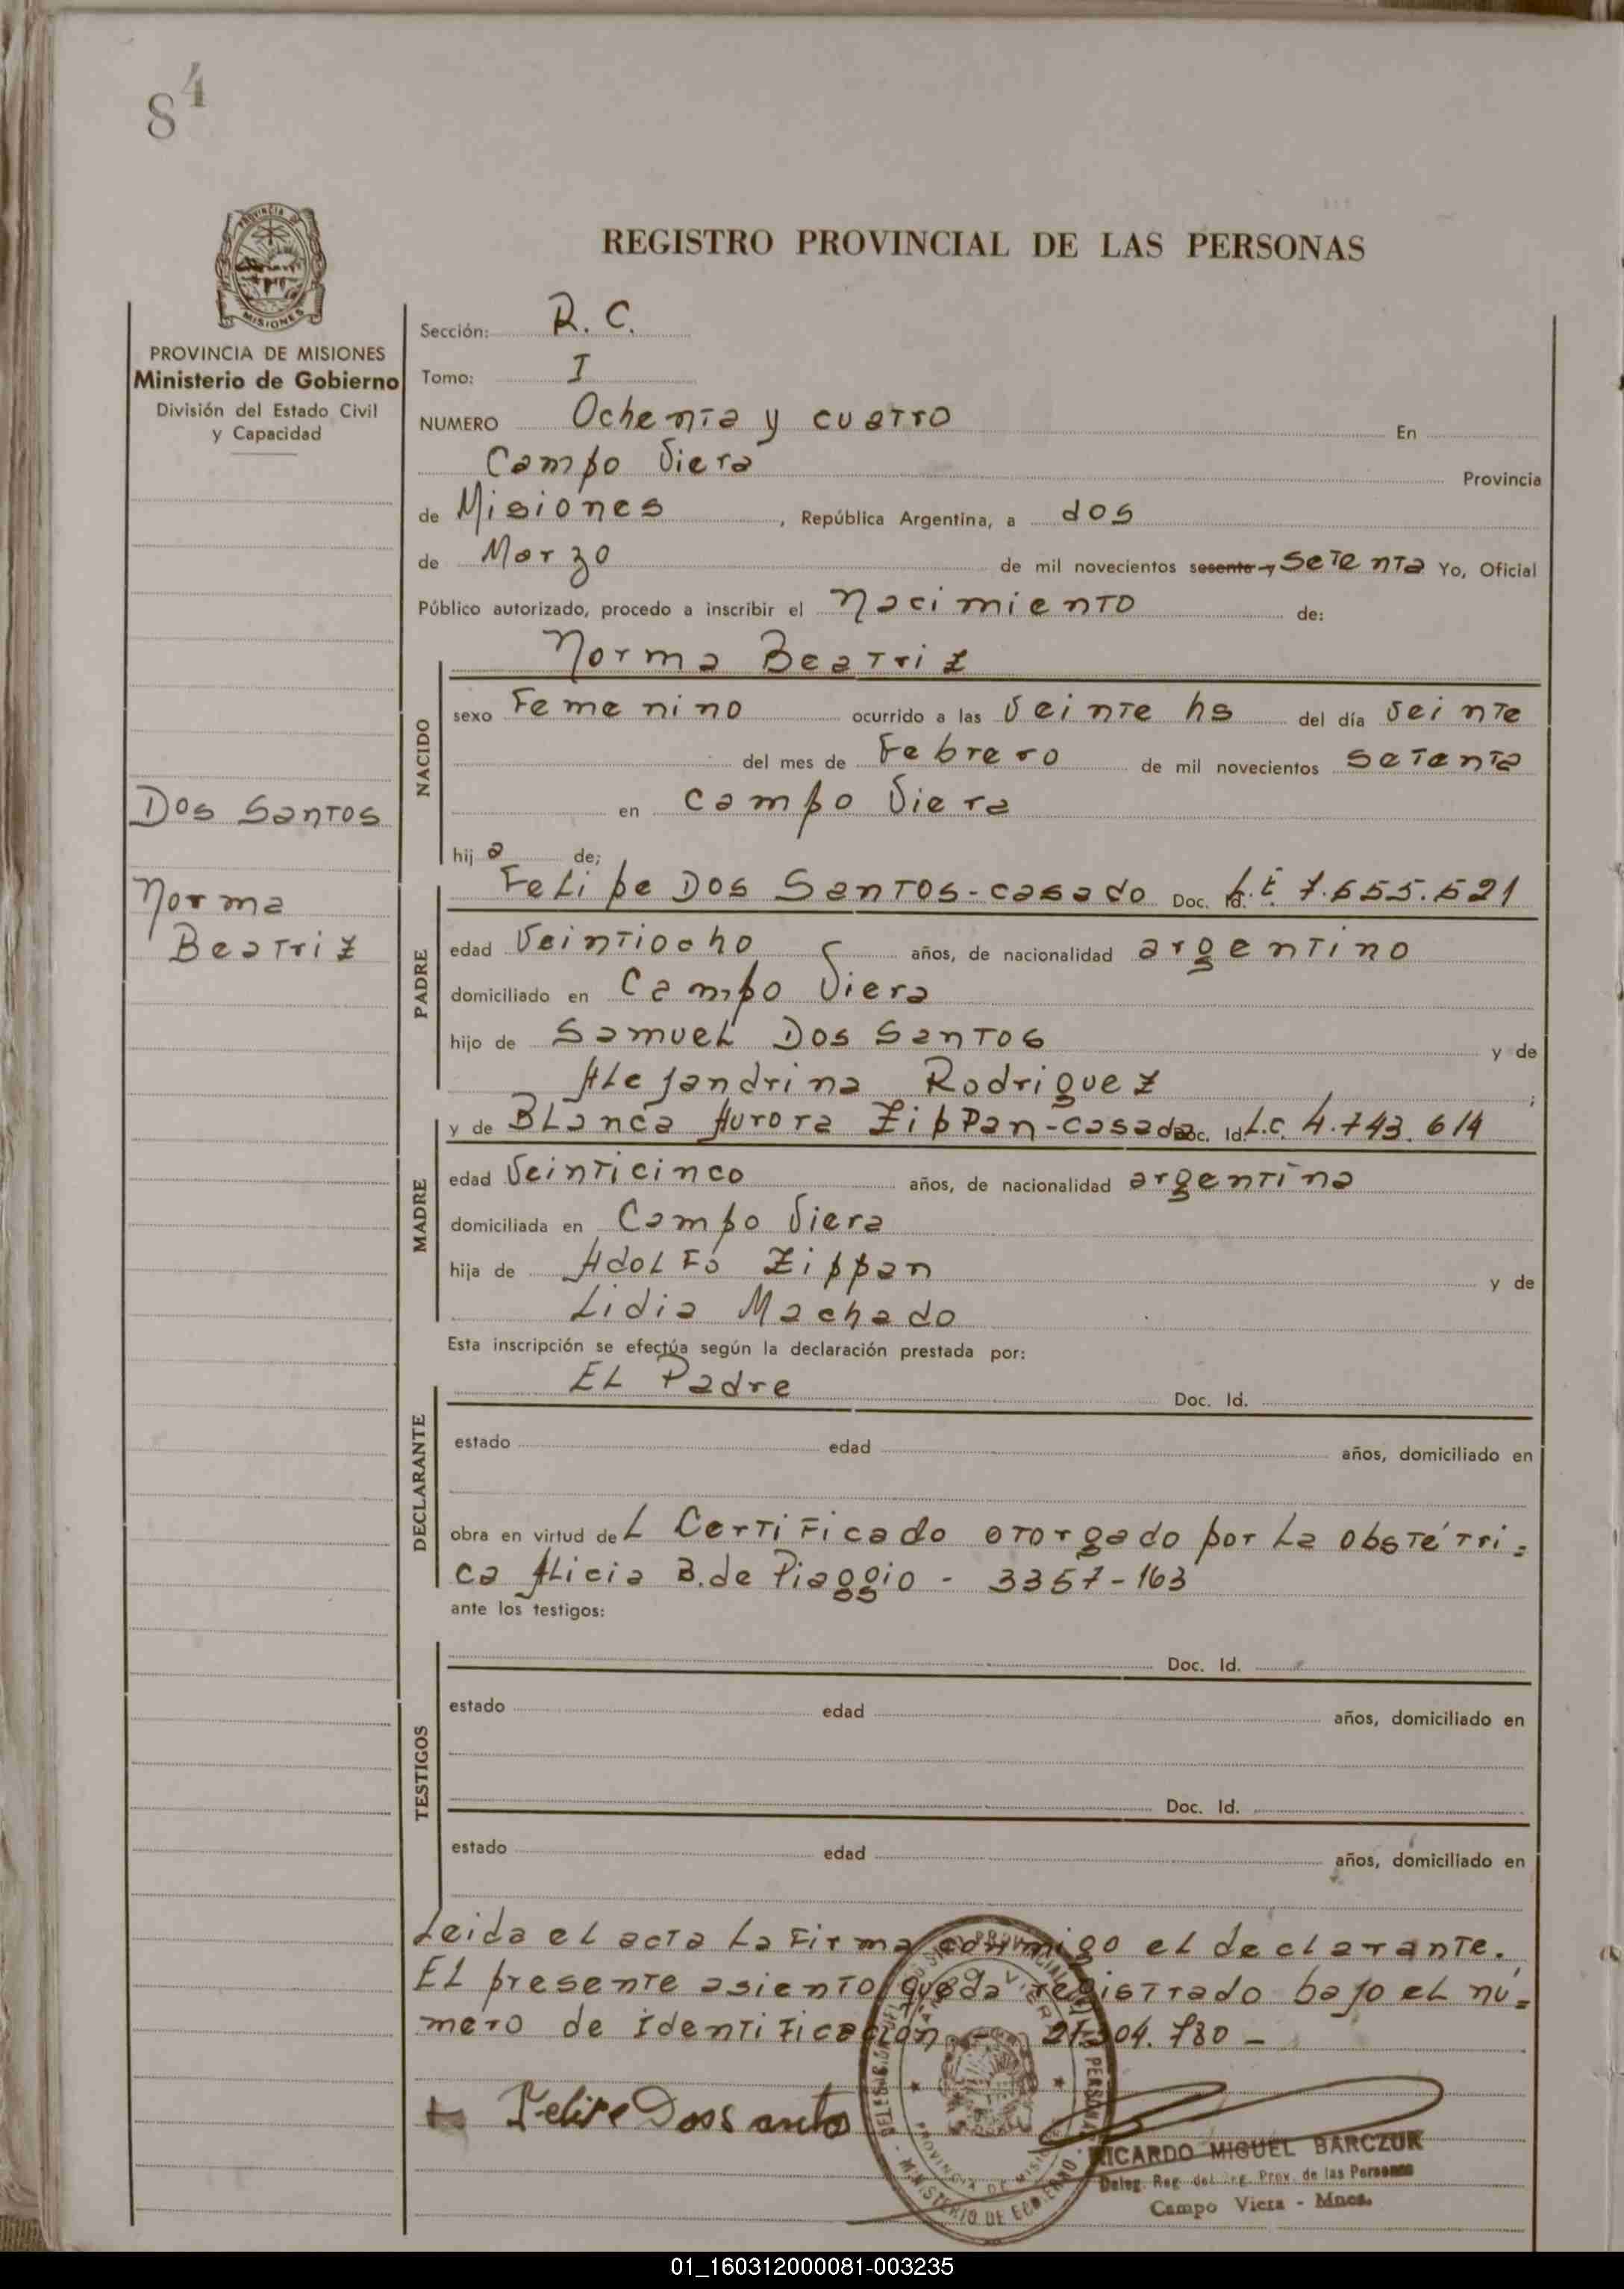 84
REGISTRO PROVINCIAL DE LAS PERSONAS
PROVINCIA DE MISIONES
Ministerio de Gobierno
División del Estado Civil
y Capacidad
Dos Santos
Norma
Beatriz
Sección: R. C.
Tomo: I
NUMERO Ochenta y cuatro En
Campo Viera Provincia
de Misiones , República Argentina, a dos
de Marzo de mil novecientos sesenta y Setenta Yo, Oficial
Público autorizado, procedo a inscribir el Nacimiento de:
NACIDO
Norma Beatriz
sexo Femenino ocurrido a las Veinte hs del día Veinte
del mes de Febrero de mil novecientos Setenta
en Campo Viera
hij a de;
PADRE
Felipe Dos Santos-casado Doc. Id. L.E. 7.655.521
edad Veintiocho años, de nacionalidad argentino
domiciliado en Campo Viera
hijo de Samuel Dos Santos y de
Alejandrina Rodriguez ;
MADRE
y de Blanca Aurora Zippan-casada Doc. Id. L.C. 4.743.614
edad Veinticinco años, de nacionalidad argentina
domiciliada en Campo Viera
hija de Adolfo Zippan y de
Lidia Machado
Esta inscripción se efectúa según la declaración prestada por:
DECLARANTE
El Padre Doc. Id.
estado edad años, domiciliado en
obra en virtud del Certificado otorgado por la obstétri=
ca Alicia B. de Piaggio - 3357-163
ante los testigos:
TESTIGOS
Doc. Id.
estado edad años, domiciliado en
Doc. Id.
estado edad años, domiciliado en
Leida el acta la firma conmigo el declarante.
El presente asiento queda registrado bajo el nú=
mero de identificación - 21.304.780 -
Felipe Dossanto
RICARDO MIGUEL BARCZUK
Deleg. Reg. del Reg. Prov. de las Personas
Campo Viera - Mnes.
01_160312000081-003235